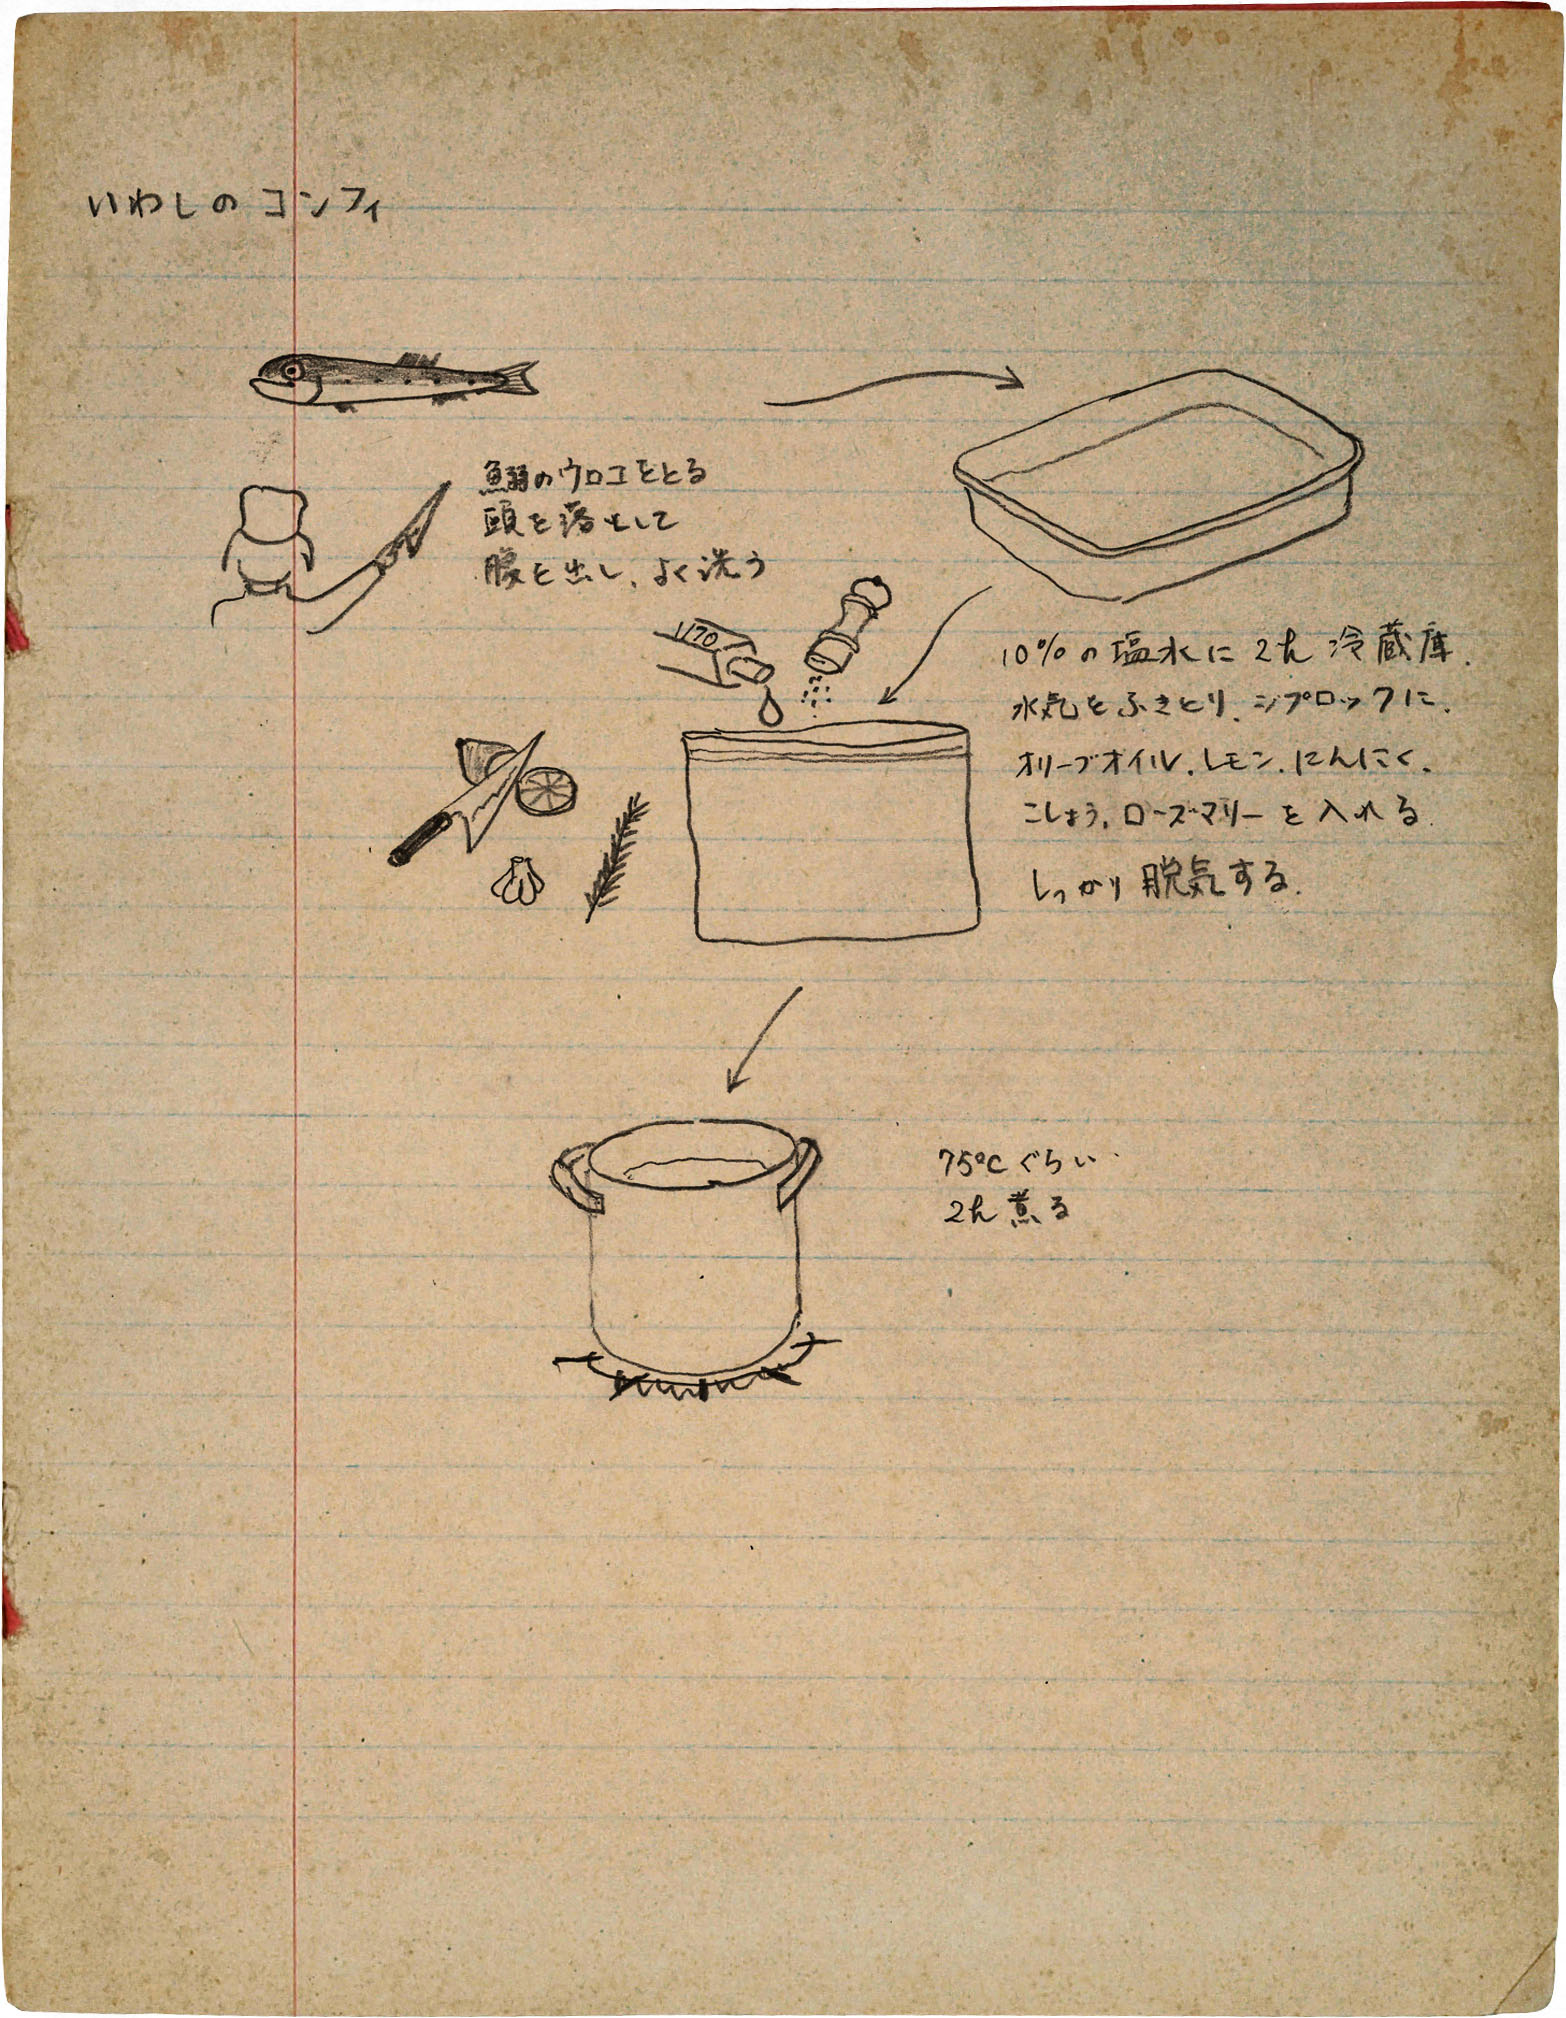 いわしのコンフィ
鰯のウロコをとる
頭を落として
腹を出し、よく洗う
1170
10%の塩水に2h 冷蔵庫.
水気をふきとり、ジプロックに、
オリーブオイル、レモン、にんにく、
こしょう、ローズマリーを入れる
しっかり脱気する.
75℃ぐらい
2h煮る